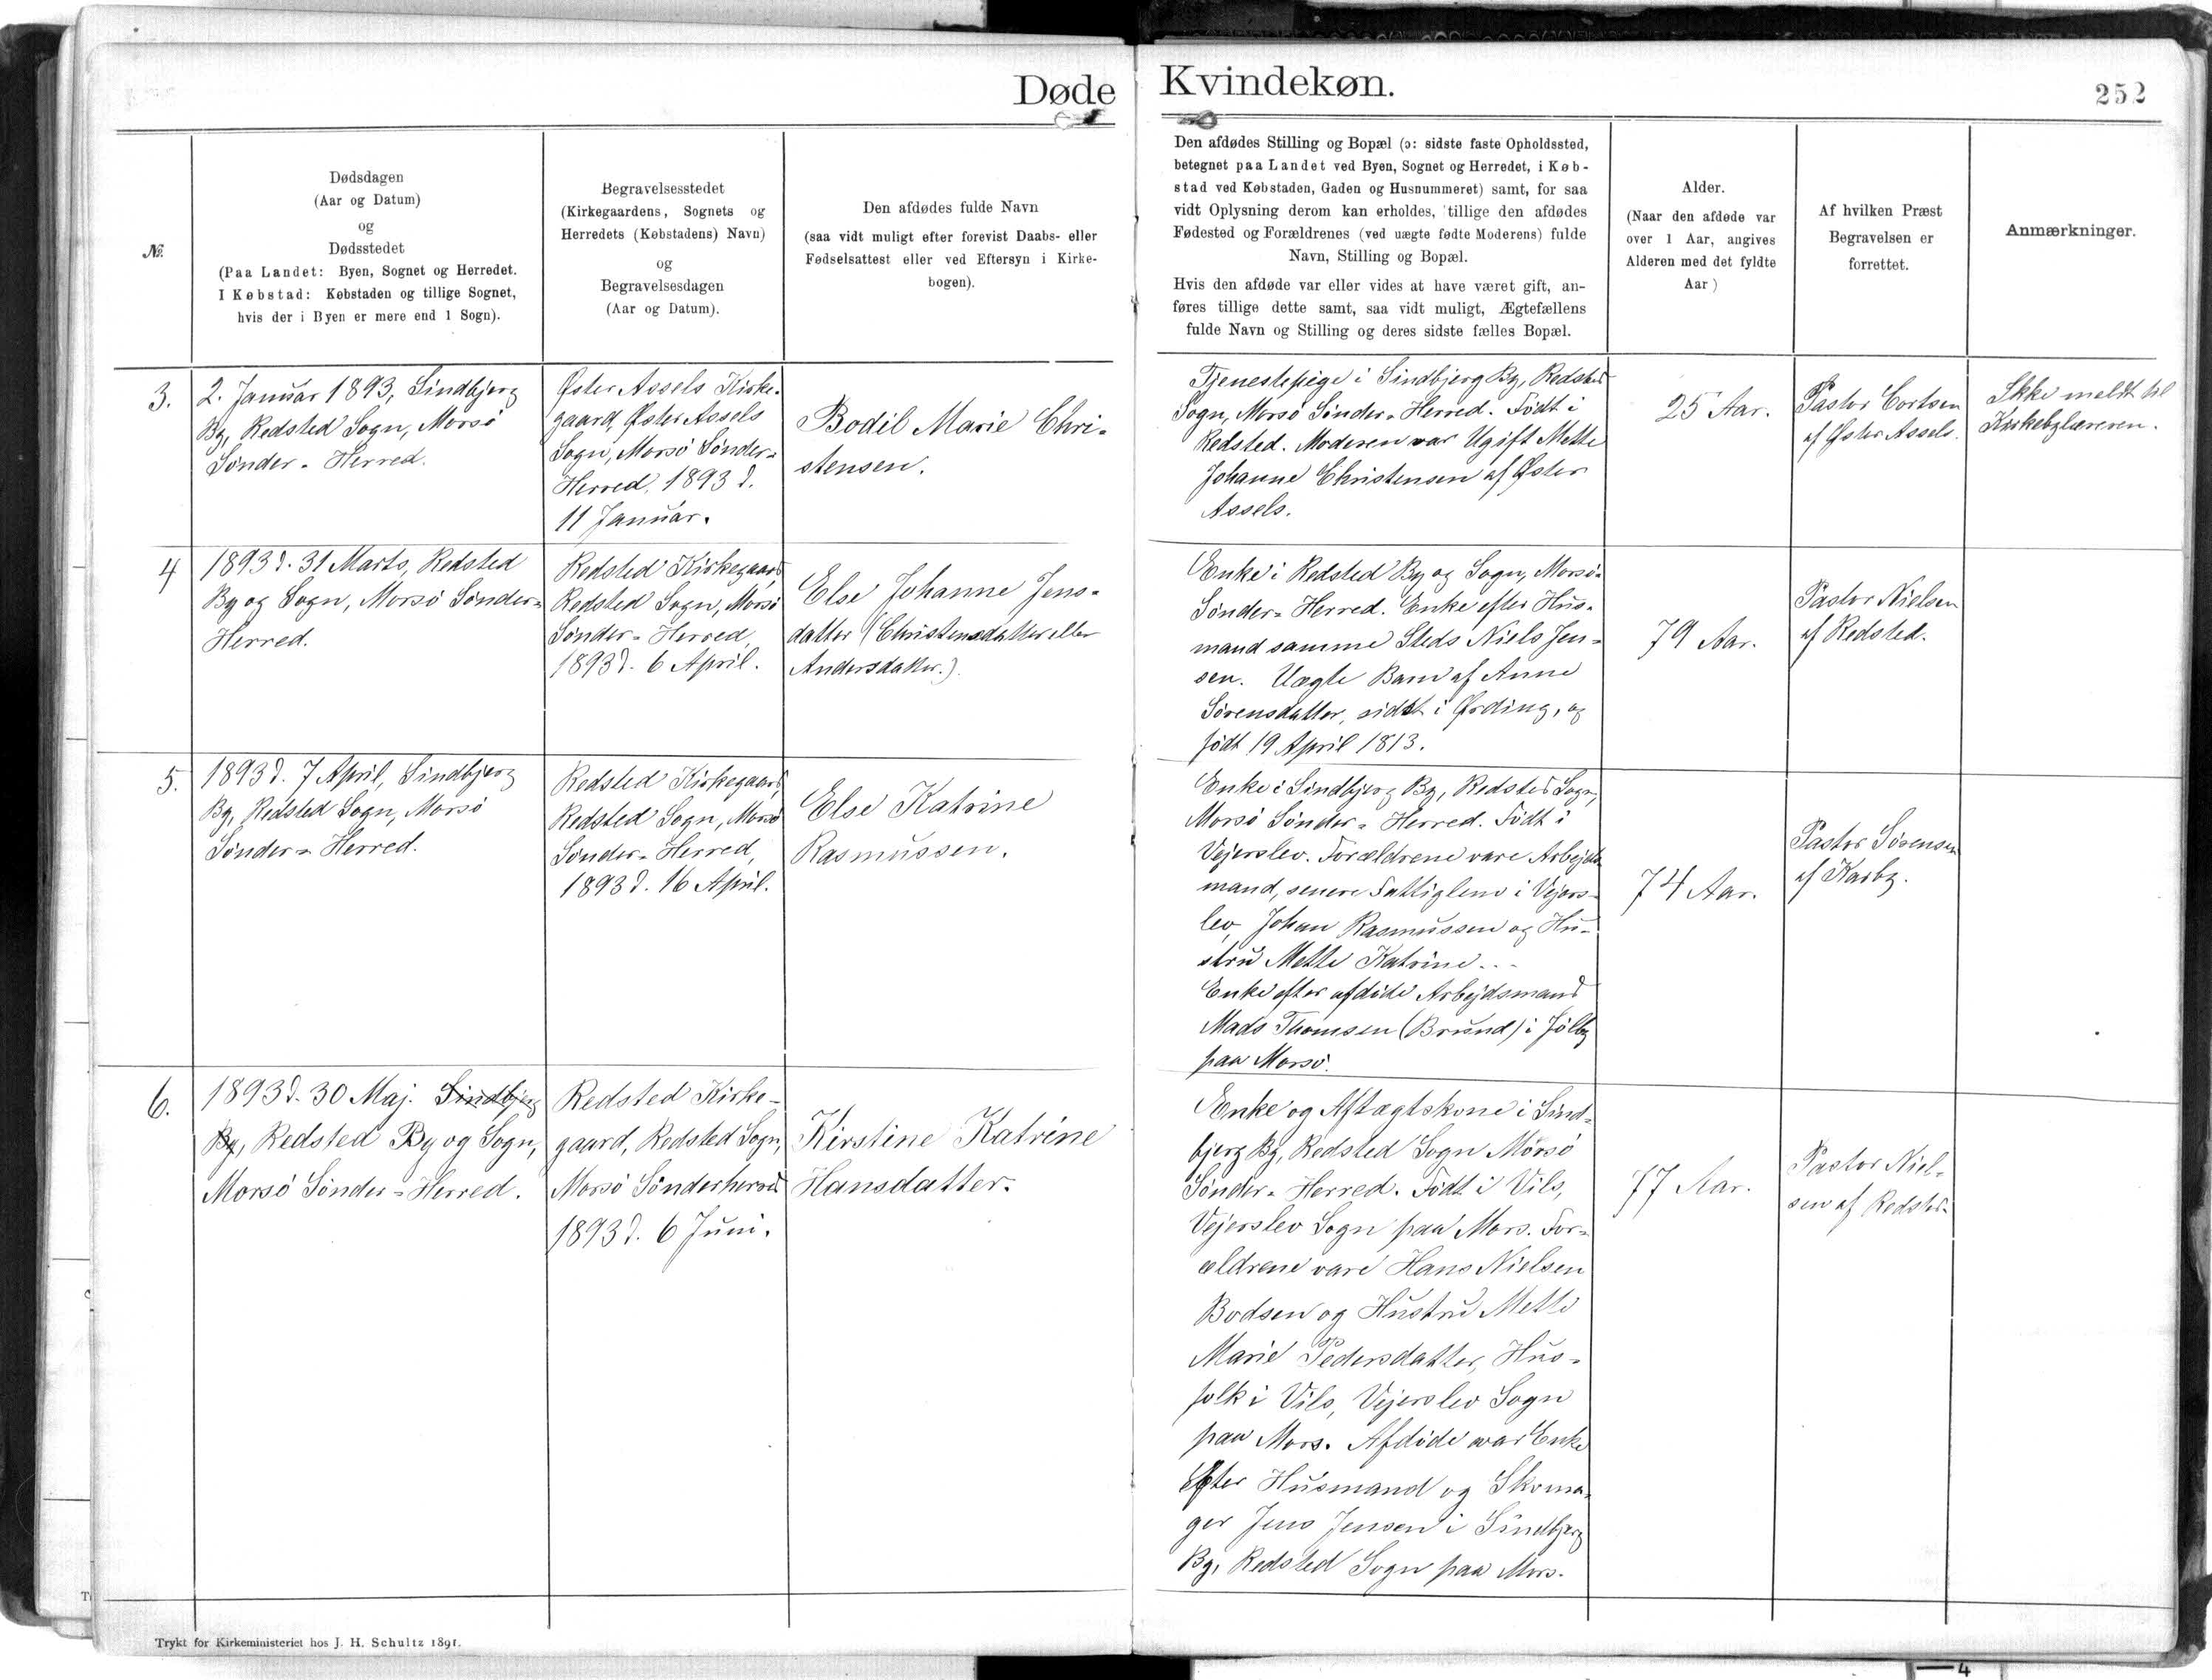 Døde Kvindekøn.
252
№.
Dødsdagen
(Aar og Datum)
og
Dødsstedet
(Paa Landet: Byen, Sognet og Herredet.
I Købstad: Købstaden og tillige Sognet,
hvis der i Byen er mere end 1 Sogn).
Begravelsesstedet
(Kirkegaardens, Sognets og
Herredets (Købstadens) Navn)
og
Begravelsesdagen
(Aar og Datum).
Den afdødes fulde Navn
(saa vidt muligt efter forevist Daabs- eller
Fødselsattest eller ved Eftersyn i Kirke-
bogen).
Den afdødes Stilling og Bopæl (ɔ: sidste faste Opholdssted,
betegnet paa Landet ved Byen, Sognet og Herredet, i Køb-
stad ved Købstaden, Gaden og Husnummeret) samt, for saa
vidt Oplysning derom kan erholdes, tillige den afdødes
Fødested og Forældrenes (ved uægte fødte Moderens) fulde
Navn, Stilling og Bopæl.
Hvis den afdøde var eller vides at have været gift, an-
føres tillige dette samt, saa vidt muligt, Ægtefællens
fulde Navn og Stilling og deres sidste fælles Bopæl.
Alder.
(Naar den afdøde var
over 1 Aar, angives
Alderen med det fyldte
Aar)
Af hvilken Præst
Begravelsen er
forrettet.
Anmærkninger.
3.
2. Januar 1893, Sindbjerg
By, Redsted Sogn, Morsö
Sönder=Herred.
Øster Assels Kirke=
gaard, Øster Assels
Sogn, Morsö Sönder=
Herred, 1893 d.
11 Januar.
Bodil Marie Chri=
stensen.
Tjenestepige i Sindbjerg By, Redsted
Sogn, Morsö Sönder=Herred. Födt i
Redsted. Moderen var Ugift Mette
Johanne Christensen af Øster
Assels.
25 Aar.
Pastor Cortsen
af Øster Assels.
Ikke meldt til
Kirkebylæreren.
4
1893 d. 31 Marts, Redsted
By og Sogn, Morsö Sönder=
Herred.
Redsted Kirkegaard
Redsted Sogn, Morsö
Sönder=Herred,
1893 d. 6 April.
Else Johanne Jens=
datter (Christensdatter eller
Andersdatter.).
Enke i Redsted By og Sogn, Morsö=
Sönder=Herred. Enke efter Hus=
mand samme Steds Niels Jen=
sen. Uægte Barn af Anne
Sörensdatter, sidst i Ørding, og
födt 19 April 1813.
79 Aar.
Pastor Nielsen
af Redsted.
5.
1893 d. 7 April, Sindbjerg
By, Redsted Sogn, Morsö
Sönder=Herred.
Redsted Kirkegaard,
Redsted Sogn, Morsö
Sönder=Herred,
1893 d. 16 April.
Else Katrine
Rasmussen.
Enke i Sindbjerg By, Redsted Sogn,
Morsö Sönder=Herred. Födt i
Vejerslev. Forældrene vare Arbejds=
mand, senere Fattiglem i Vejers=
lev, Johan Rasmussen og Hu=
stru Mette Katrine...
Enke efter afdöde Arbejdsmand
Mads Thomsen (Brund) i Jölby
paa Morsö.
74 Aar.
Pastor Sörensen
af Karby.
6.
1893 d. 30 Maj. Sindbjerg
By, Redsted By og Sogn,
Morsö Sönder=Herred.
Redsted Kirke=
gaard, Redsted Sogn,
Morsö Sönderherred
1893 d. 6 Juni.
Kirstine Katrine
Hansdatter.
Enke og Aftægtskone i Sind=
bjerg By, Redsted Sogn Morsö
Sönder=Herred. Födt i Vils,
Vejerslev Sogn paa Mors. For=
ældrene vare Hans Nielsen
Bodsen og Hustru Mette
Marie Pedersdatter, Hus=
folk i Vils, Vejerslev Sogn
paa Mors. Afdöde var Enke
Efter Husmand og Skoma=
ger Jens Jensen i Sindbjerg
By, Redsted Sogn paa Mors.
77 Aar.
Pastor Niel=
sen af Redsted
Trykt for Kirkeministeriet hos J. H. Schultz 1891.
4